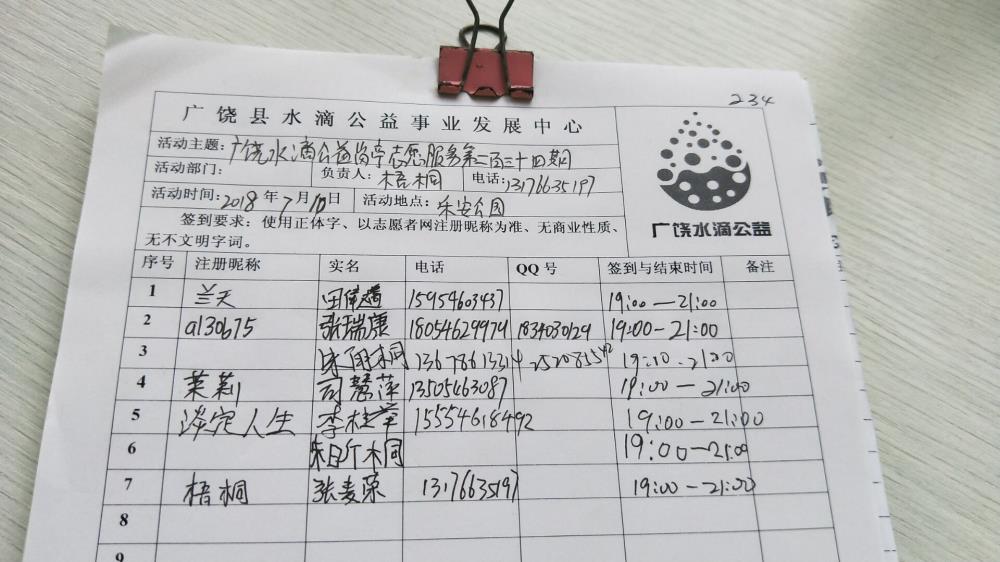 234
广饶县水滴公益事业发展中心
活动主题:广饶水滴公益岗亭志愿服务第二百三十四期
活动部门: 负责人:梧桐 电话:13176635197
活动时间:2018年7月10日 活动地点:乐安公园
签到要求:使用正体字、以志愿者网注册昵称为准、无商业性质、
无不文明字词。
广饶水滴公益
序号 注册昵称 实名 电话 QQ号 签到与结束时间 备注
1 兰天 15954603437 19:00—21:00
2 a130675 张瑞康 18054629974 1834030129 19:00-21:00
3 13678613314 19:10-21:00
4 茉莉 司慧萍 13505463087 19:00—21:00
5 淡定人生 李桂华 15554618492 19:00—21:00
6 19:00—21:00
7 梧桐 张麦荣 13176635197 19:00—21:00
8
9